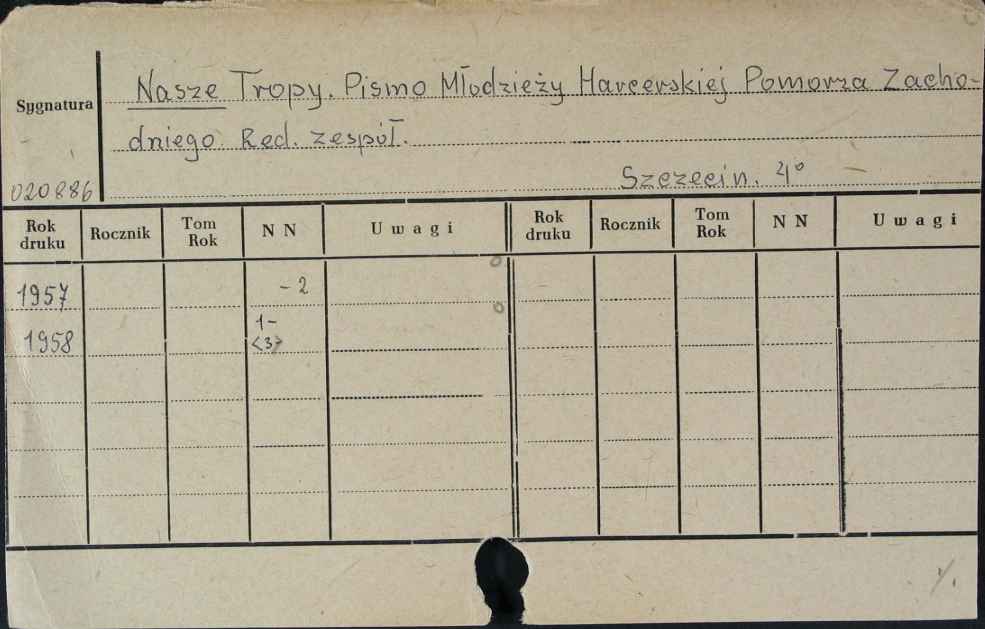 Sygnatura
020886
Nasze Tropy. Pismo Młodzieży Harcerskiej Pomorza Zacho-
dniego. Red. zespół.
Szczecin. 4°
Rok druku Rocznik Tom Rok NN Uwagi Rok druku Rocznik Tom Rok NN Uwagi
1957 -2
1958 1-
<3>